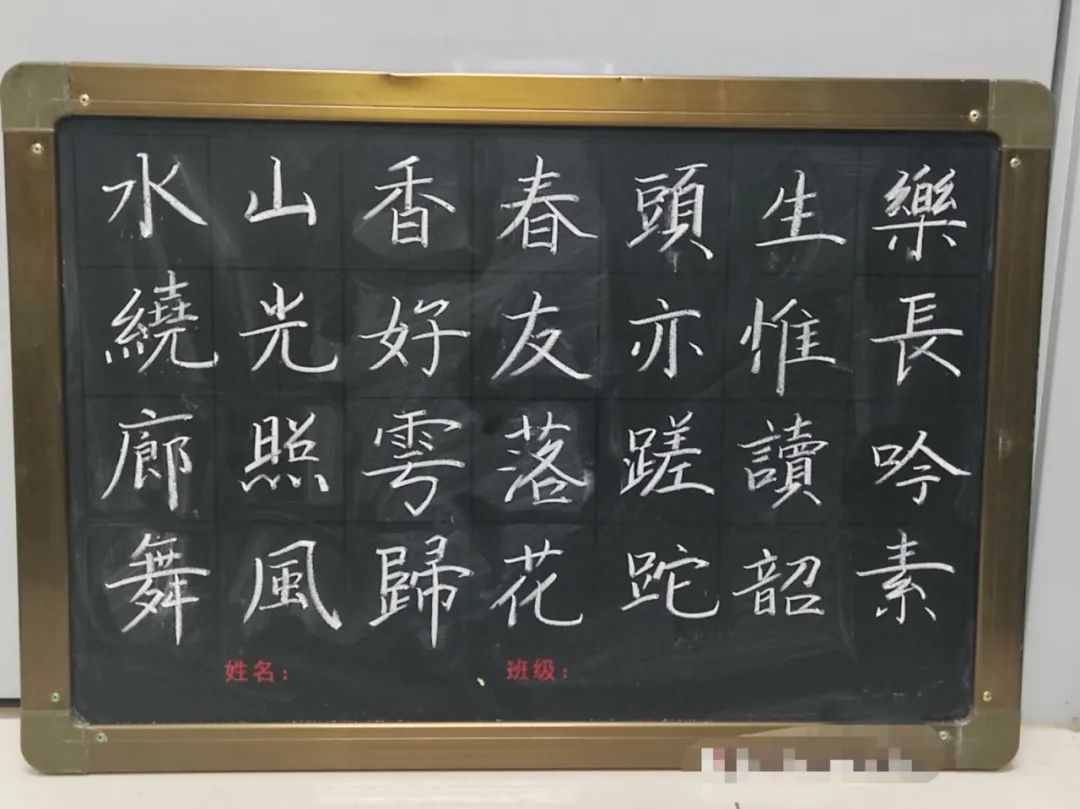 水繞廊舞
山光照風
香好雩歸
春友落花
頭亦蹉跎
生惟讀韶
樂長吟素
姓名： 班级：